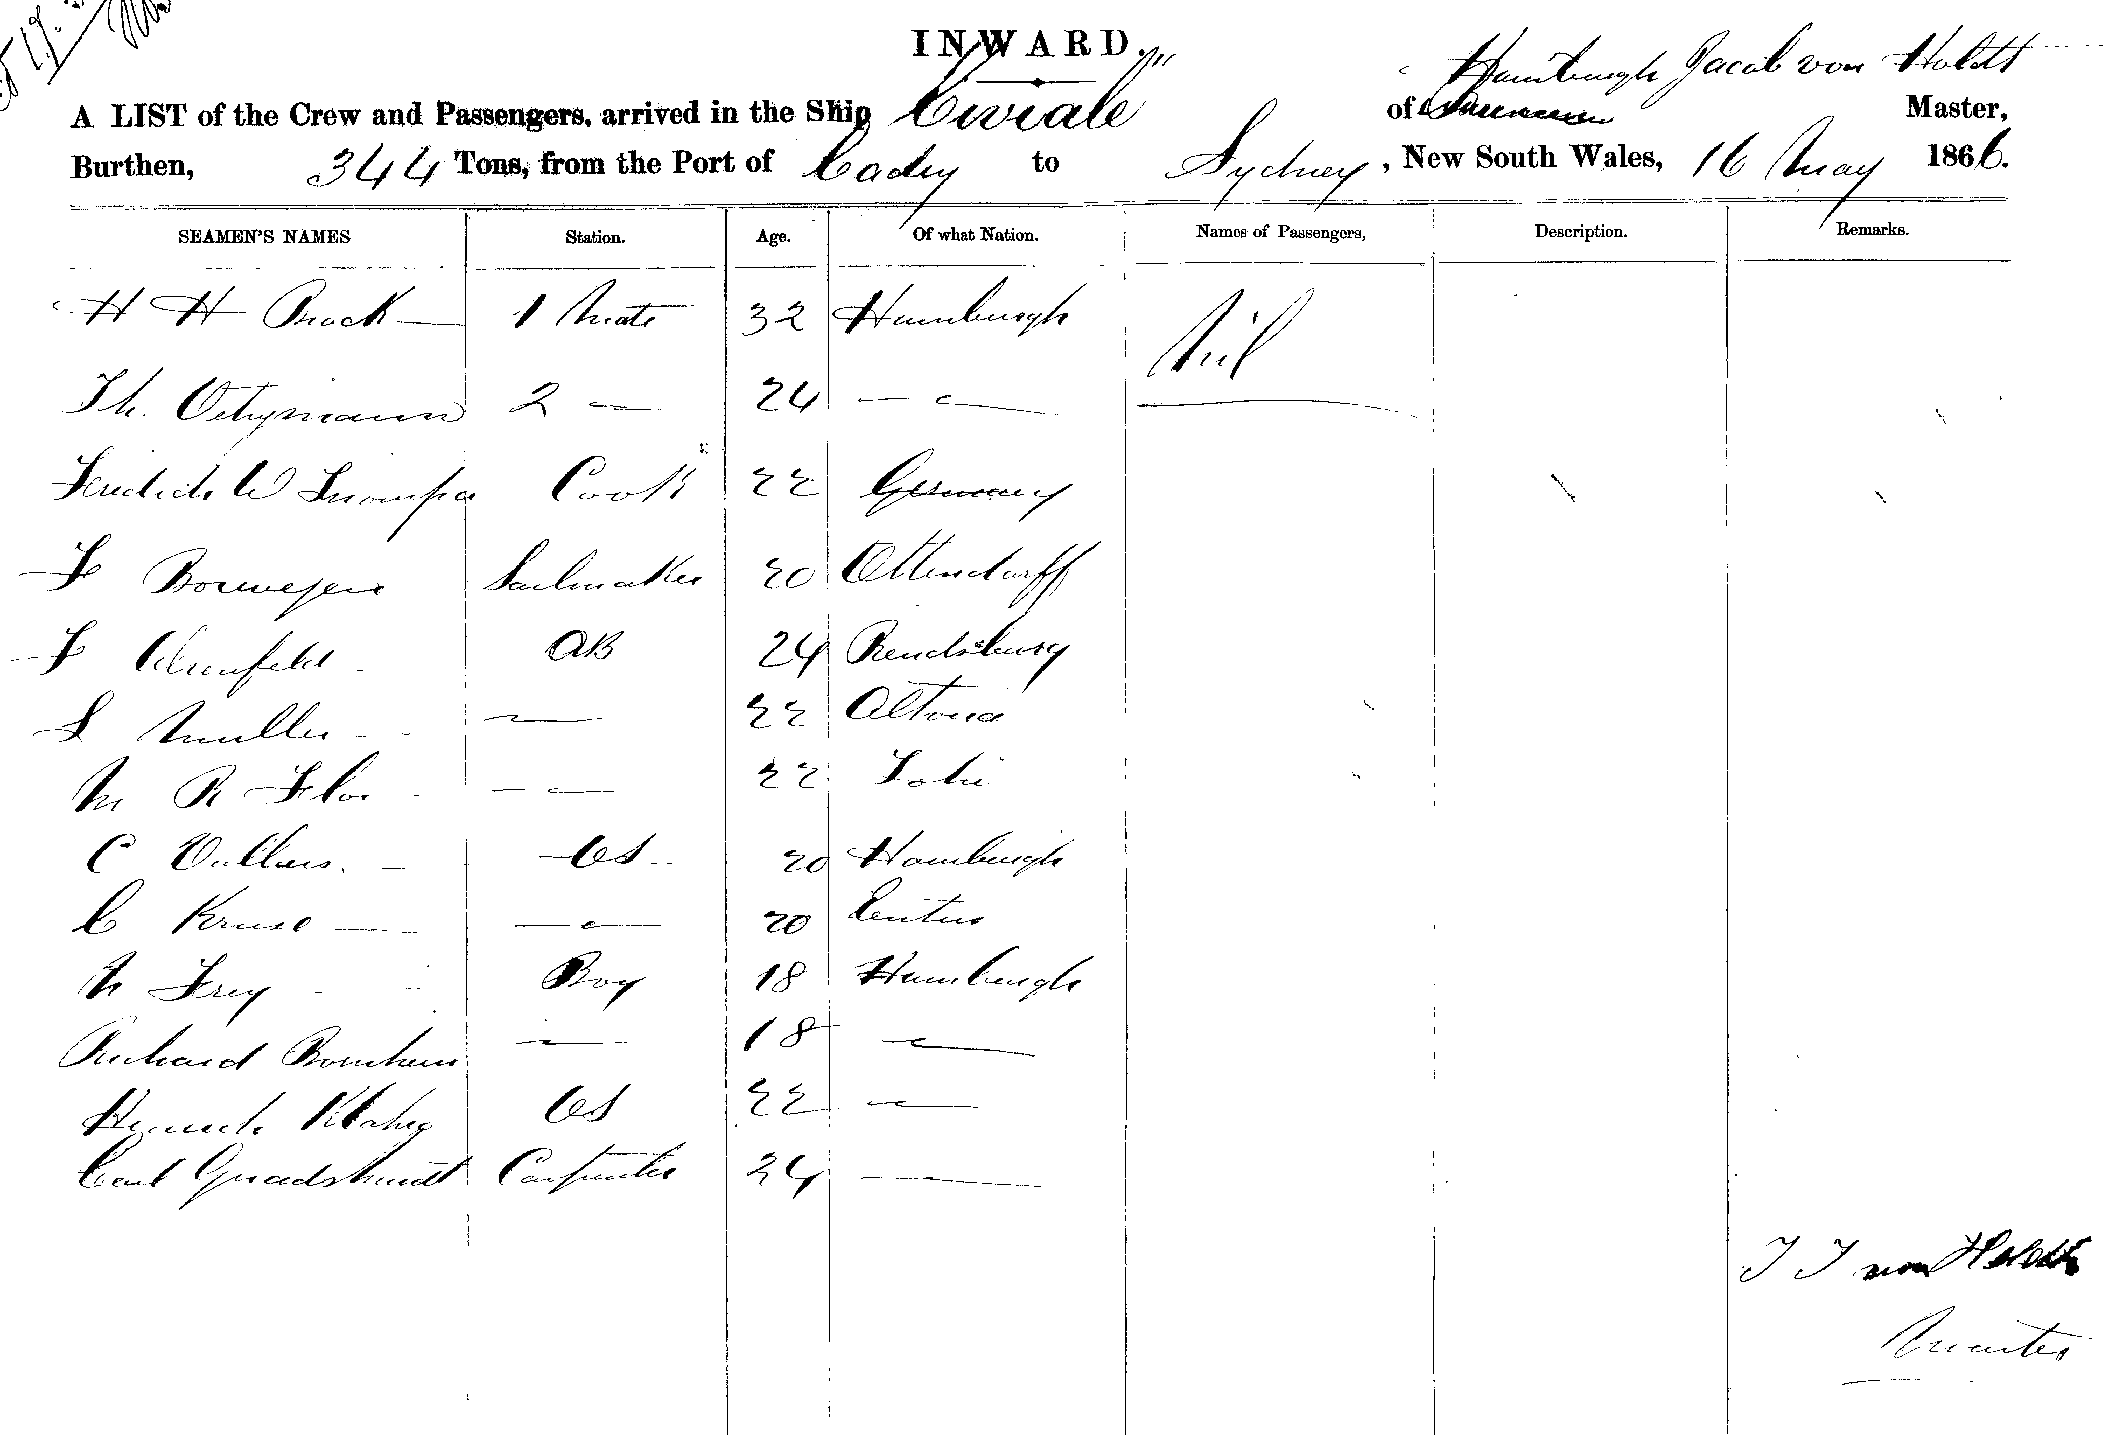 INWARD.
A LIST of the Crew and Passengers, arrived in the Ship "Cviale" of Hamburgh Jacob von Holdt Master,
Burthen, 344 Tons, from the Port of Cadiz to Sydney, New South Wales, 16 May 1866.
SEAMEN'S NAMES Station. Age. Of what Nation. Names of Passengers, Description. Remarks.
H H Brock 1 Mate 32 Hamburgh Nil
Th. 2 — 24 —
W Cook 22 Germany
F Sailmaker 20 Ottendorff
F AB 24 Rendsburg
Muller — 22 Altona
M R Flor — 22
C OS 20 Hamburgh
C Kruse — 20
N Frey Boy 18 Hamburgh
Richard — 18 —
OS 22 —
Carl Carpenter 24 —
J J von Holdt
Master